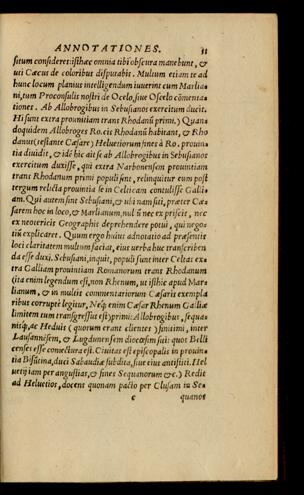 ANNOTATIONES. 33
situm consideres: isthæc omnia tibi obscura manebunt, &
uti Cæcus de coloribus disputabis. Multum etiam te ad
hunc locum planius intelligendum iuverint cum Marlia-
ni, tum Proconsulis nostri de Ocelo, sive Oscelo cõmenta-
tiones. Ab Allobrogibus in Sebusianos exercitum ducit.
Hi sunt extra provintiam trans Rhodanũ primi.) Quan-
doquidem Allobroges Ro. cis Rhodanũ habitant, & Rho
danus (restante Cæsare) Helvetiorum fines à Ro. provin-
tia dividit, & idẽ hic ait se ab Allobrogibus in Sebusianos
exercitum duxisse, qui extra Narbonensem provintiam
trans Rhodanum primi populi sunt, relinquitur eum post
tergum relicta provintia se in Celticam contulisse Galli-
am. Qui autem sint Sebusiani, & ubi nam siti, præter Cæ-
sarem hoc in loco, & Marlianum, nulũ nec ex priscis, nec
ex neotericis Geographis deprehendere potui, qui nego-
tiũ explicaret. Quum ergo huius adnotatio ad præsentis
loci claritatem multum faciat, eius verba huc transcriben
da esse duxi. Sebusiani, inquit, populi sunt inter Celtas ex-
tra Galliam provintiam Romanorum trans Rhodanum
(ita enim legendum est, non Rhenum, ut isthic apud Marli
lianum, & in multis commentariorum Cæsaris exempla
ribus corruptè legitur, Neq; enim Cæsar Rhenum Galliæ
limitem tum transgressus est) primi: Allobrogibus, sequa-
nisq́;, ac Heduis (quorum erant clientes) finitimi, inter
Lausannesem, & Lugdunensem diocæsim siti: quos Belli
censes esse coniectura est. Civitas est episcopalis in provin
tia Bisutina, duci Sabaudiæ subdita, sive eius antistiti. Hel
vetij iam per angustias, & fines Sequanorum &c.) Redit
ad Helvetios, docent quonam pacto per Clusam in Se-
c quanos